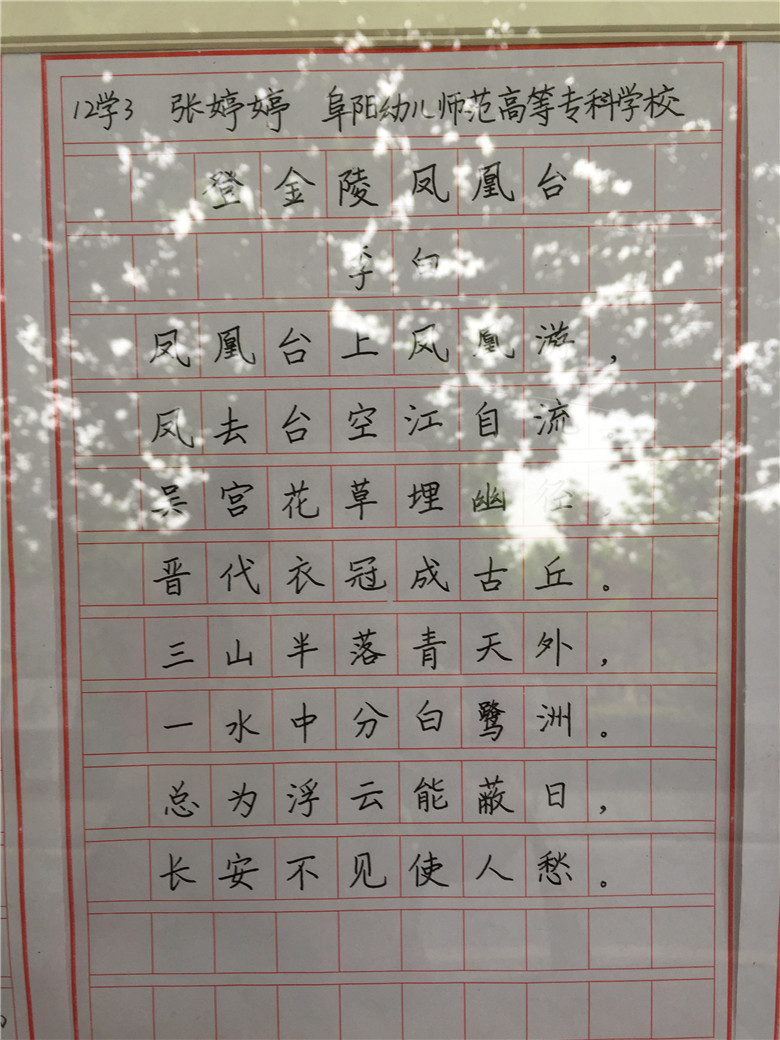 12学3 张婷婷 阜阳幼儿师范高等专科学校
登金陵凤凰台
李白
凤凰台上凤凰游，
凤去台空江自流。
吴宫花草埋幽径，
晋代衣冠成古丘。
三山半落青天外，
一水中分白鹭洲。
总为浮云能蔽日，
长安不见使人愁。